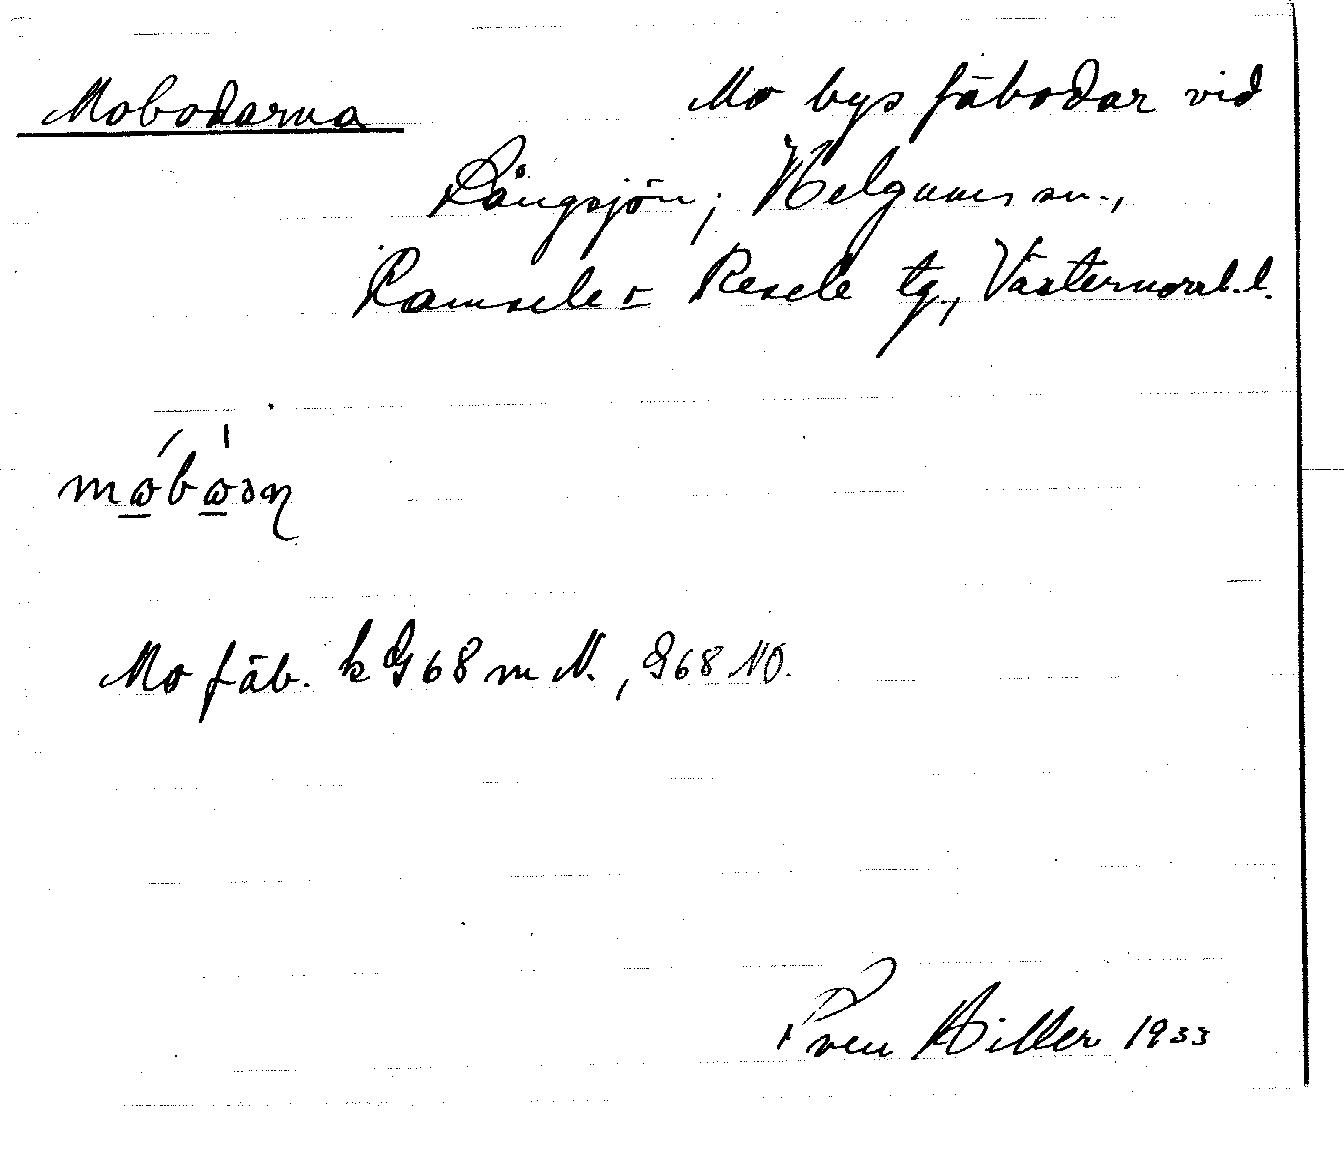 Mobodarna Mo bys fäbodar vid
Långsjön; Helgums sn.,
Ramsele o Resele tg, Västernorrl. l.
Mo fäb. k G 68 m N., G68 NO.
Sven Hiller 1933